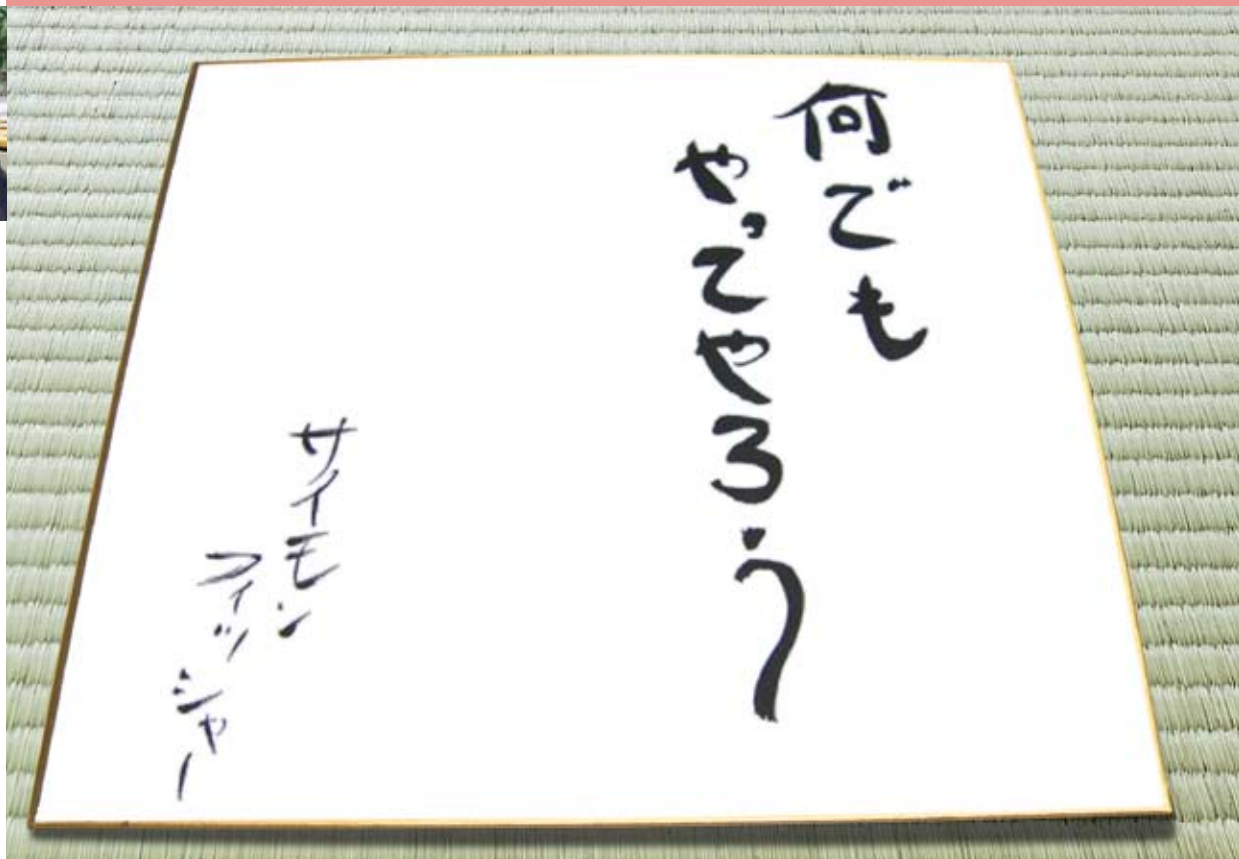 何でも
やってやろう
サイモン
フィッシャー